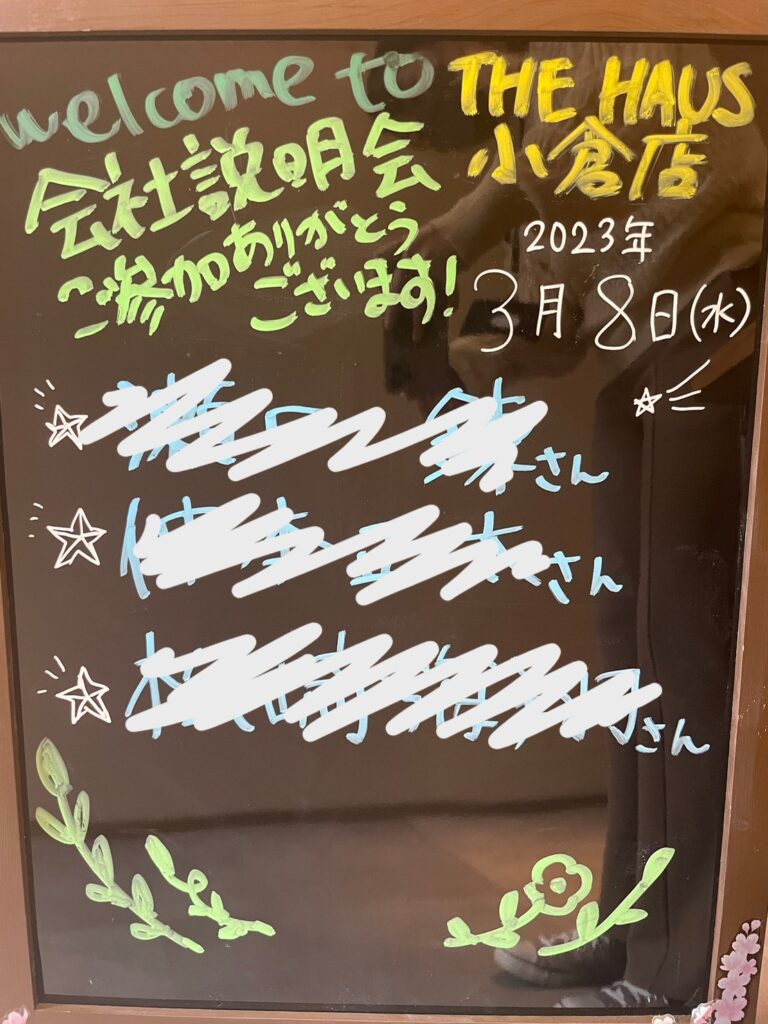 welcome to
THE HAUS
小倉店
会社説明会
ご参加ありがとう
ございます!
2023年
3月8日(水)
さん
さん
さん